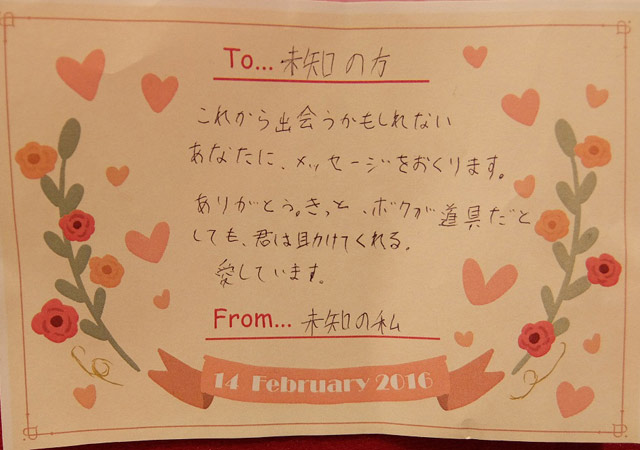 To... 未知の方
これから出会うかもしれない
あなたに、メッセージをおくります。
ありがとう。きっと、ボクが道具だと
しても、君は助けてくれる。
愛しています。
From... 未知の私
14 February 2016